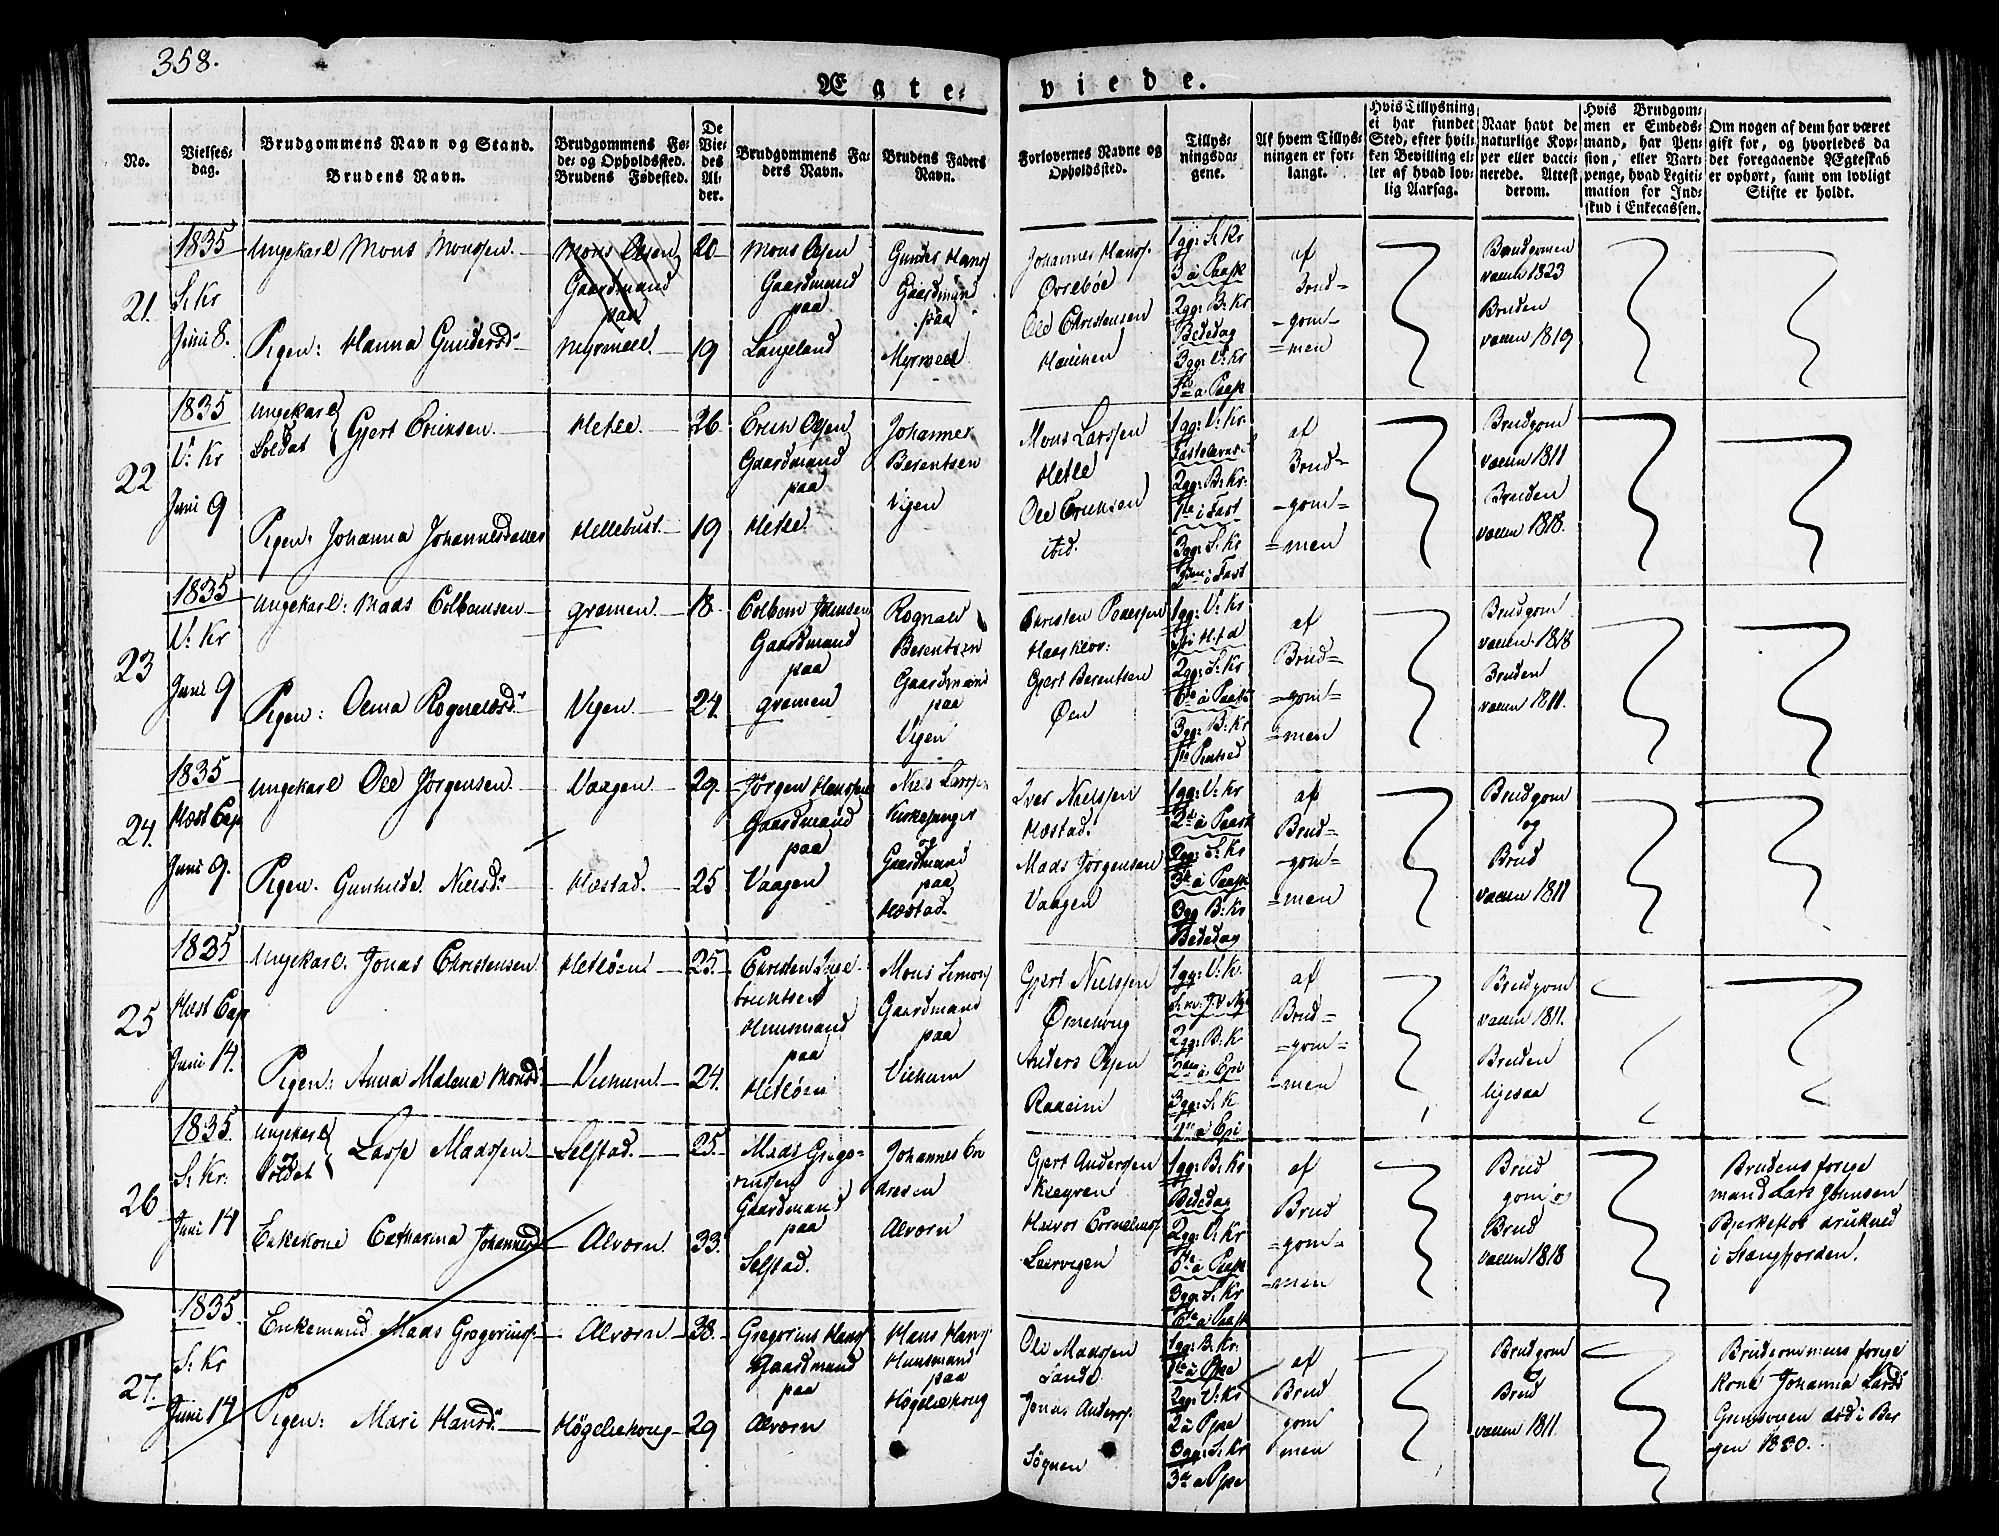 358.
Ægte-
viede.
No.
Vielses-
dag.
Brudgommens Navn og Stand.
Brudens Navn.
Brudgommens Fø-
de- og Opholdssted.
Brudens Fødested.
De
Vie-
des
Al-
der.
Brudgommens Fa-
ders Navn.
Brudens Faders
Navn.
Forlovernes Navne og
Opholdssted.
Tillys-
ningsda-
gene.
Af hvem Tillys-
ningen er for-
langt.
Hvis Tillysning
ei har fundet
Sted, efter hvil-
ken Bevilling el-
ler af hvad lov-
lig Aarsag.
Naar havt de
naturlige Kop-
per eller vacci-
nerede. Attest
derom.
Hvis Brudgom-
men er Embeds-
mand, har Pen-
sion, eller Vart-
penge, hvad Legiti-
mation for Ind-
skud i Enkecassen.
Om nogen af dem har været
gift før, og hvorledes da
det foregaaende Ægteskab
er ophørt, samt om lovligt
Skifte er holdt.
21.
1835
S. Kr
Juni 8.
Ungekarl Mons Monssen
Pigen: Hanna Gundersd
Mons Olsen
Gaardmand
paa
Myrmell
20
19
Mons Olsen
Gaardmand
paa
Langeland
Gunder Hans
Gaardmand
paa
Myrmell
Johannes Hans
Ovrebøe
Ole Christensen
Haunen
1gg: S. Kr
3 a Paask
2gg: B: Kr
Bededag
3gg: V: Kr
af
Brud-
-gom-
=men
Brudgomen
vacin 1823
Bruden
vaccin 1819
22
1835
V: Kr
Juni 9
Ungekarl
Soldat
Gjert Ericksen
Pigen: Johanna Johannesdatter
Hetle
Hellebust
26
19
Erich Olsen
Gaardmand
paa
Hetle
Johannes
Berentsen
Vigen
Mons Larssen
Hetle
Ole Ericksen
ibid.
1gg: V: Kr
2gg: B: Kr.
3gg: S. Kr
af
Brud-
-gom-
=men
Brudgom
vaccin 1811
Bruden
vaccin 1818.
23
1835
V: Kr
Juni 9
Ungekarl: Mads Colbensen
Pigen: Oena Rognaldsd
gramen
Vigen
18
24.
Colben Johnsen
Gaardmand
paa
gramen
Rognald
Berentsen
Gaardmand
paa
Vigen
Christen Poulssen
Gjert Berentsen
Øen
1gg: V: Kr
2gg: S: Kr
3gg: B: Kr
af
Brud-
-gom-
=men
Brudgom
vaccin 1818
Bruden
vaccin 1811.
24.
1835
Hæst Cap
Juni 9.
Ungekarl Ole Jørgensen
Pigen. Gunhilde Nielsd
Vaagen
Hæstad
29.
25
Jørgen Hanssen
Gaardmand
paa
Vaagen
Niels Larssen
Kirkesanger
Gaardmand
paa
Hæstad.
Iver Nielssen
Hæstad.
Mads Jørgensen
Vaagen
1gg: V: Kr
2gg: S: Kr
3gg B: Kr
Bededag
af
Brud-
-gom-
=men
Brudgom
og
Brud
vaccin 1811
25
1835
Hæst Cap
Juni 14.
Ungekarl. Jonas Christensen
Pigen: Anna Malena Monsd
25.
24.
Christen Inge-
brichtsen
Huusmand
paa
Mons Simons
Gaardmand
paa
Gjert Nielssen
Anders Olsen
1gg: V: K.
2gg: B: K
3gg: S: K
af
Brud-
-gom-
=men
Brudgom
vaccin 1811.
Bruden
ligesaa
26
1835.
S. Kr:
Juni 14
Ungekarl
Soldat
Lasse Madssen
Enkekone Catharina Johannesd
Selstad.
Alværn.
25.
33.
Mads Grego-
riussen
Gaardmand
paa
Selstad.
Johannes
Alværn
Gjert Anderssen
Halvor Cornelius
Leervigen
1gg: B: Kr
Bededag
2gg: V: Kr
3gg: S: Kr
af
Brud
=gom-
=men
Brud
gom og
Brud
vaccin 1818
Brudens forige
mand Lars Johnsen
Bjerkeflot druknede
i Stangfjorden.
27.
1835
S: Kr
Juni 14
Enkemand Mads Gregoriuss
Pigen: Mari Hansd
Alværn
38.
29
Gregorius Hans
Gaardmand
paa
Alværn
Hans Hans
Huusmand
paa
Ole Madssen
Sande
Jonas Anders
Sognen
1gg: B: Kr.
2gg: V: Kr
3gg: S: Kr
af
Brud
gom
men
Brudgom
Brud
vaccin 1811.
Brudgommens forige
kone Johanna Larsd
død i Ber
gen 1830.